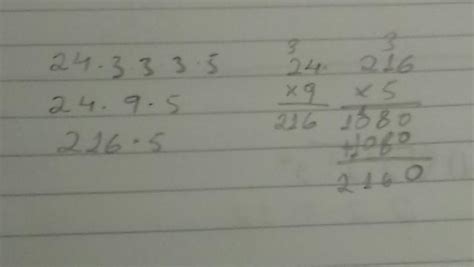 24.3 3 3.5
24.9.5
216.5
3
24.
×9
216
3
216
×5
1080
+1080
2160